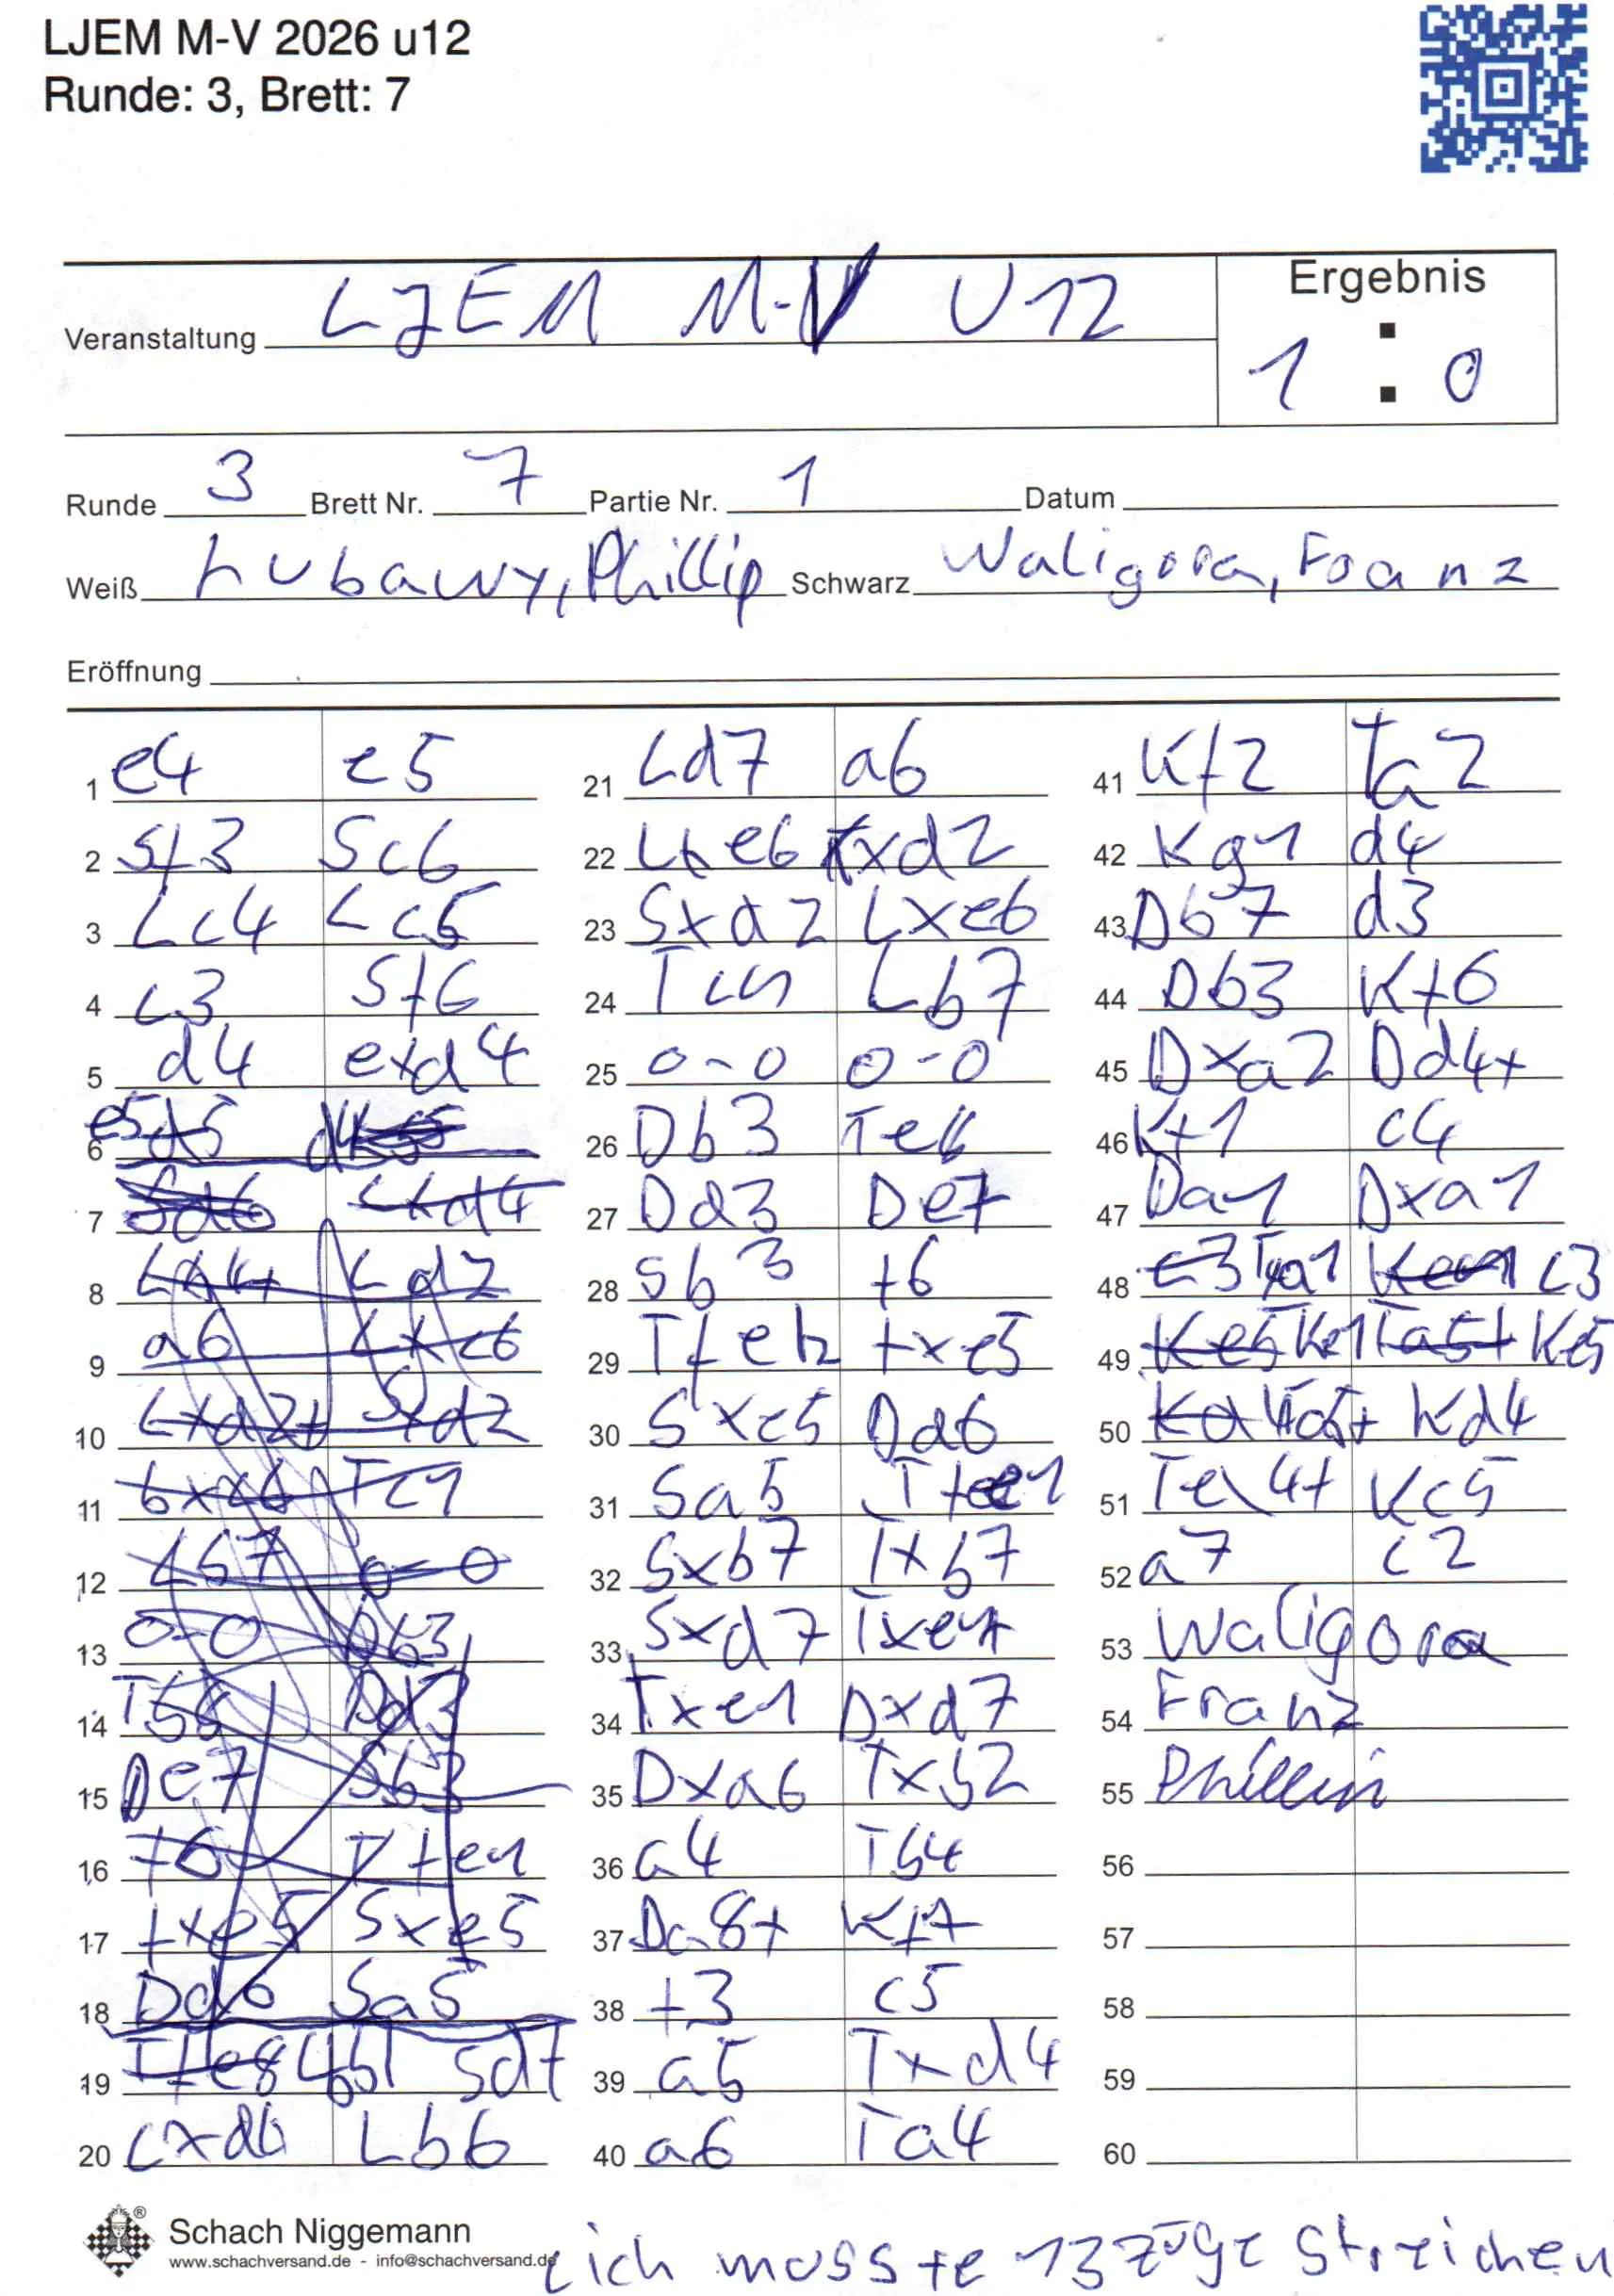 LJEM M-V 2026 u12
Runde: 3, Brett: 7
Veranstaltung LJEM M-V U12
Ergebnis
1 : 0
Runde 3 Brett Nr. 7 Partie Nr. 1 Datum
Weiß Lubawy, Phillip Schwarz Waligora, Franz
Eröffnung
1 e4 e5
2 Sf3 Sc6
3 Lc4 Lc5
4 c3 Sf6
5 d4 exd4
6 e5
7 Lxd4
8 Ld2
9 a6 Lxc6
10 Lxd2+ Sxd2
11 bxc6 Tc1
12 Lb7 0-0
13 0-0 Db3
14 Dd3
15 De7 Sb3
16 f6 Tfe1
17 fxe5 Sxe5
18 Dd6 Sa5
19 Tfe8 Sd7
20 cxd6 Lb6
21 Ld7 a6
22 Lxe6 fxd2
23 Sxd2 Lxe6
24 Tc1 Lb7
25 0-0 0-0
26 Db3 Te8
27 Dd3 De7
28 Sb3 f6
29 Tfe1 fxe5
30 Sxe5 Dd6
31 Sa5
32 Sxb7 Txb7
33 Sxd7 Txe1
34 Txe1 Dxd7
35 Dxa6 Txb2
36 a4 Tb4
37 Da8+ Kf7
38 f3 c5
39 a5 Txd4
40 a6 Ta4
41 Kf2 Ta2
42 Kg1 d4
43 Db7 d3
44 Db3 Kf6
45 Dxa2 Dd4+
46 Kf1 c4
47 Da1 Dxa1
48 c3 Txa1 c3
49 Ke5 Ke1 Ta5+ Ke5
50 Kd4
51 Te4+ Kc5
52 a7 c2
53 Waligora
54 Franz
55 Phillip
56
57
58
59
60
Schach Niggemann
www.schachversand.de - info@schachversand.de
ich musste 13 züge streichen